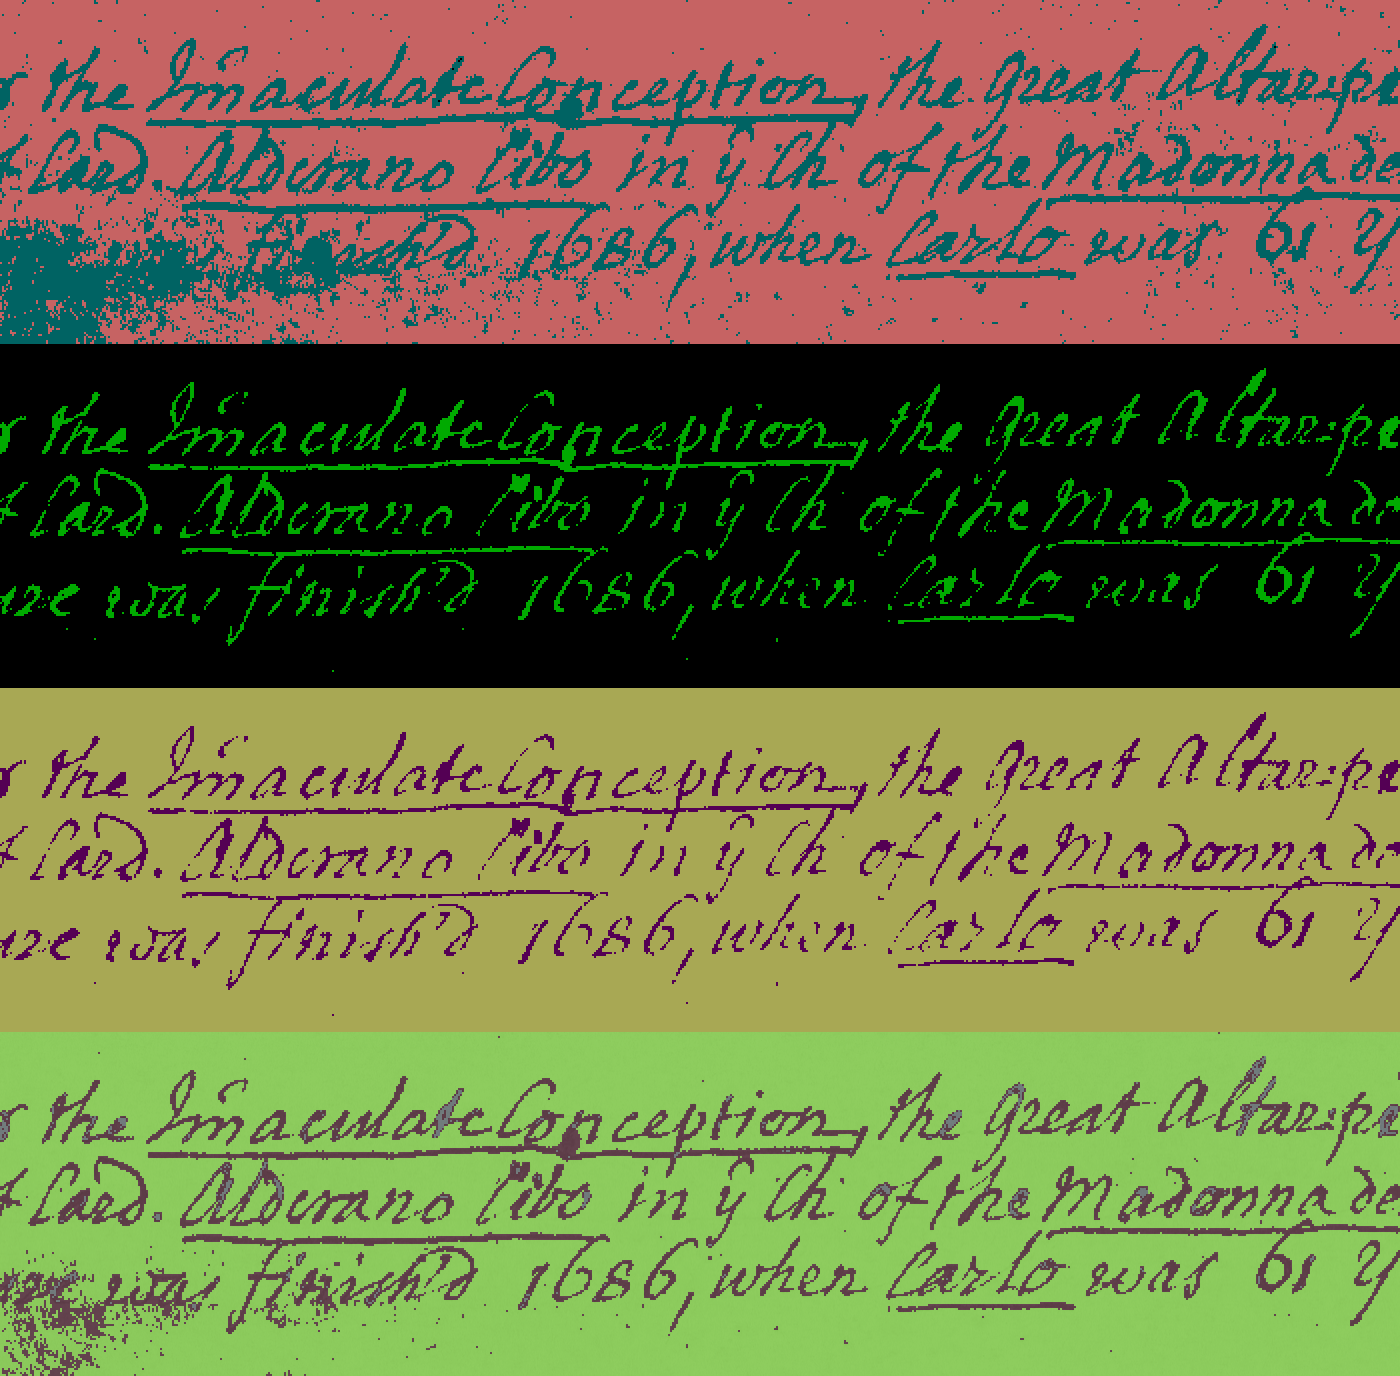 the Im̄aculate Conception, the great Altar:pe
Card. Alderano Cibo in ȳ Ch of the Madonna de
finish'd 1686, when Carlo was 61 y
the Im̄aculate Conception, the great Altar:pe
Card. Alderano Cibo in ȳ Ch of the Madonna de
ure was finish'd 1686, when Carlo was 61 y
the Im̄aculate Conception, the great Altar:pe
Card. Alderano Cibo in ȳ Ch of the Madonna de
ure was finish'd 1686, when Carlo was 61 y
the Im̄aculate Conception, the great Altar:pe
Card. Alderano Cibo in ȳ Ch of the Madonna de
ure was finish'd 1686, when Carlo was 61 y